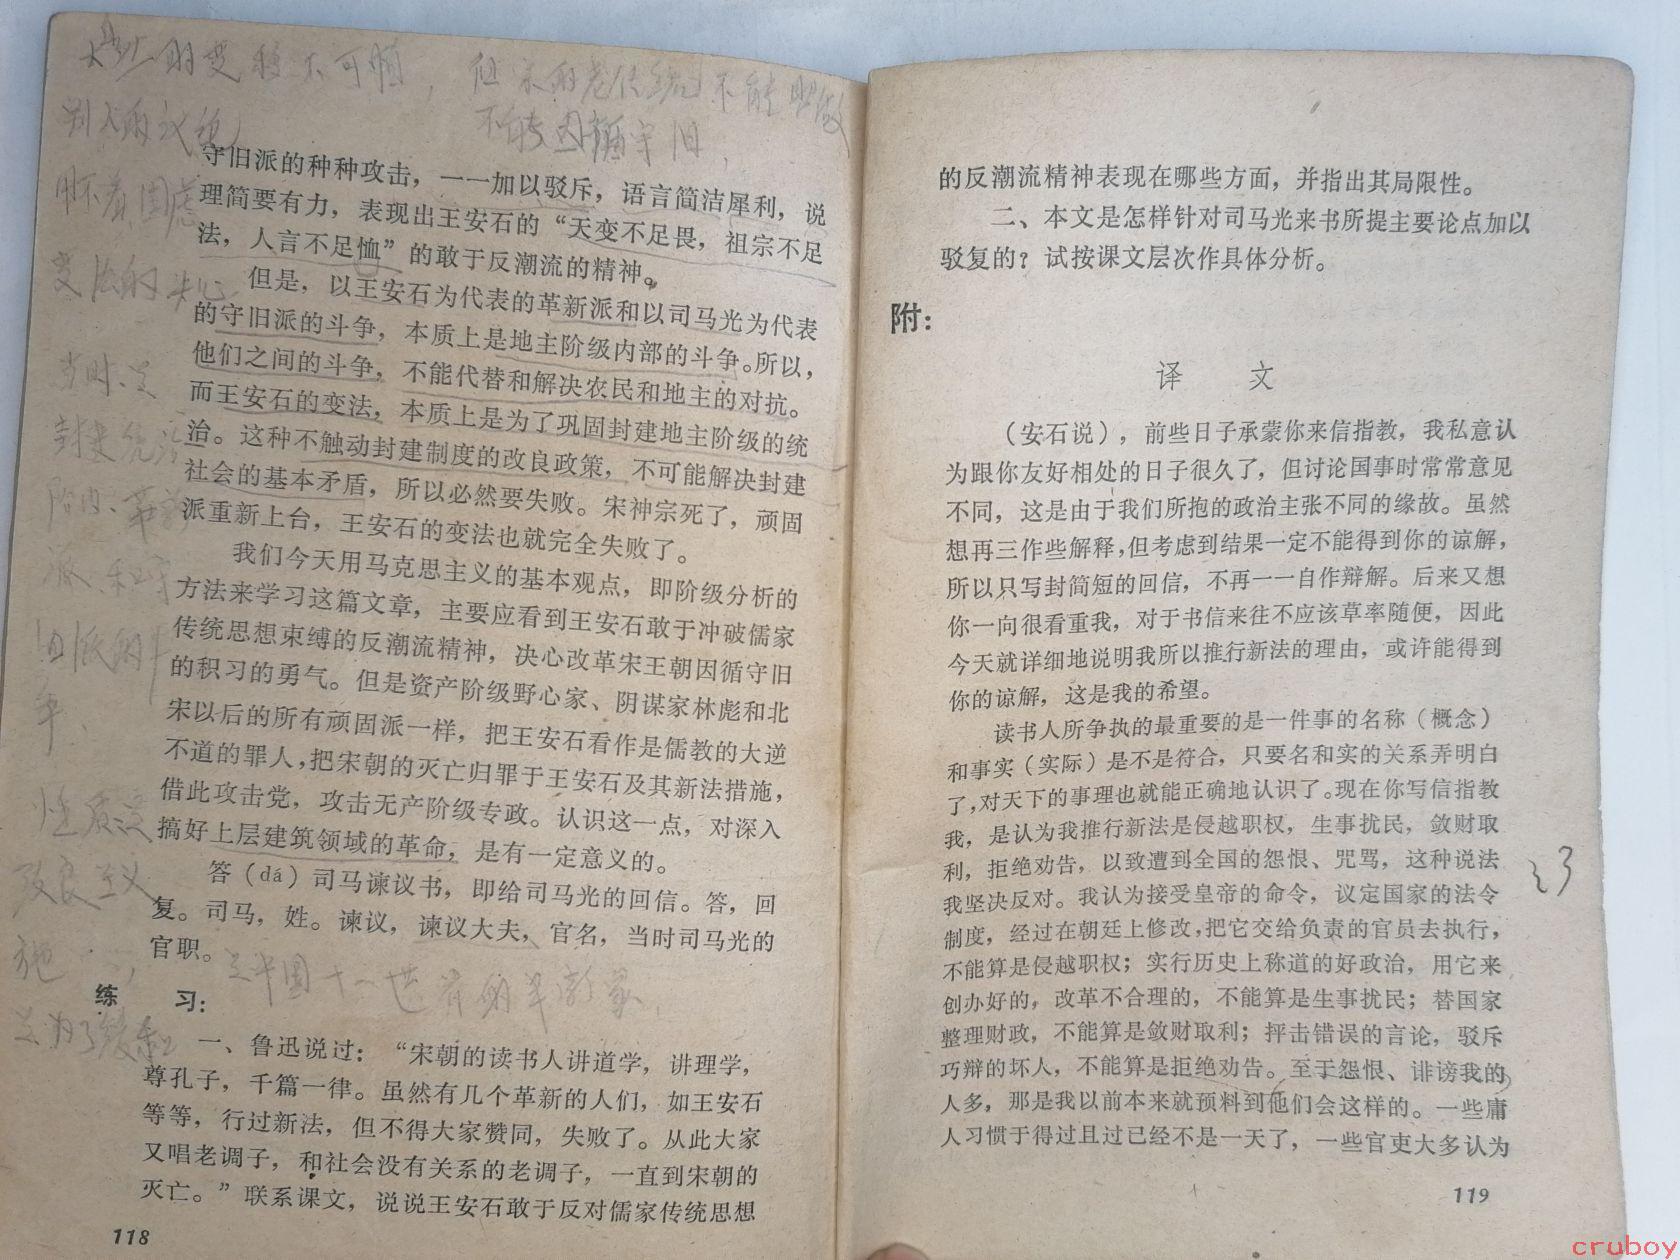 天变的变移不可惧，但宗的老传统不能照做
别人的议论 不能因循守旧，
用不着固虑
变法的决心
当时、是
封建统治
阶内、革新
派、和守
旧派的斗
争、
性质是
改良主义
是为了缓和
是中国十一世纪的革新家，
守旧派的种种攻击，一一加以驳斥，语言简洁犀利，说
理简要有力，表现出王安石的“天变不足畏，祖宗不足
法，人言不足恤”的敢于反潮流的精神。
但是，以王安石为代表的革新派和以司马光为代表
的守旧派的斗争，本质上是地主阶级内部的斗争。所以，
他们之间的斗争，不能代替和解决农民和地主的对抗。
而王安石的变法，本质上是为了巩固封建地主阶级的统
治。这种不触动封建制度的改良政策，不可能解决封建
社会的基本矛盾，所以必然要失败。宋神宗死了，顽固
派重新上台，王安石的变法也就完全失败了。
我们今天用马克思主义的基本观点，即阶级分析的
方法来学习这篇文章，主要应看到王安石敢于冲破儒家
传统思想束缚的反潮流精神，决心改革宋王朝因循守旧
的积习的勇气。但是资产阶级野心家、阴谋家林彪和北
宋以后的所有顽固派一样，把王安石看作是儒教的大逆
不道的罪人，把宋朝的灭亡归罪于王安石及其新法措施，
借此攻击党，攻击无产阶级专政。认识这一点，对深入
搞好上层建筑领域的革命，是有一定意义的。
答（dá）司马谏议书，即给司马光的回信。答，回
复。司马，姓。谏议，谏议大夫，官名，当时司马光的
官职。
练 习：
一、鲁迅说过：“宋朝的读书人讲道学，讲理学，
尊孔子，千篇一律。虽然有几个革新的人们，如王安石
等等，行过新法，但不得大家赞同，失败了。从此大家
又唱老调子，和社会没有关系的老调子，一直到宋朝的
灭亡。”联系课文，说说王安石敢于反对儒家传统思想
118
的反潮流精神表现在哪些方面，并指出其局限性。
二、本文是怎样针对司马光来书所提主要论点加以
驳复的？试按课文层次作具体分析。
附：
译 文
（安石说），前些日子承蒙你来信指教，我私意认
为跟你友好相处的日子很久了，但讨论国事时常常意见
不同，这是由于我们所抱的政治主张不同的缘故。虽然
想再三作些解释，但考虑到结果一定不能得到你的谅解，
所以只写封简短的回信，不再一一自作辩解。后来又想
你一向很看重我，对于书信来往不应该草率随便，因此
今天就详细地说明我所以推行新法的理由，或许能得到
你的谅解，这是我的希望。
读书人所争执的最重要的是一件事的名称（概念）
和事实（实际）是不是符合，只要名和实的关系弄明白
了，对天下的事理也就能正确地认识了。现在你写信指教
我，是认为我推行新法是侵越职权，生事扰民，敛财取
利，拒绝劝告，以致遭到全国的怨恨、咒骂，这种说法
我坚决反对。我认为接受皇帝的命令，议定国家的法令
制度，经过在朝廷上修改，把它交给负责的官员去执行，
不能算是侵越职权；实行历史上称道的好政治，用它来
创办好的，改革不合理的，不能算是生事扰民；替国家
整理财政，不能算是敛财取利；抨击错误的言论，驳斥
巧辩的坏人，不能算是拒绝劝告。至于怨恨、诽谤我的
人多，那是我以前本来就预料到他们会这样的。一些庸
人习惯于得过且过已经不是一天了，一些官吏大多认为
119
23
cruboy